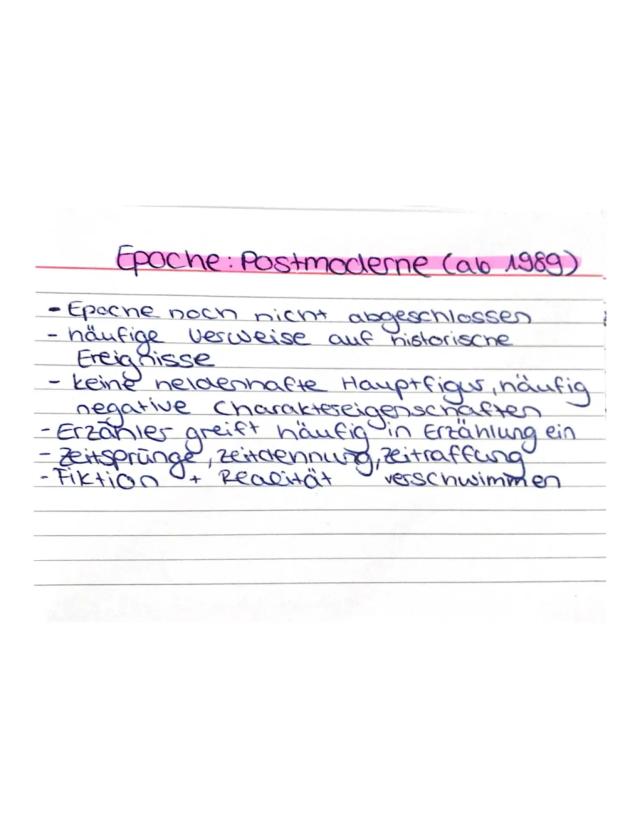 Epoche: Postmoderne (ab 1989)
- Epoche noch nicht abgeschlossen
- häufige Verweise auf historische
Ereignisse
- keine heldenhafte Hauptfigur, häufig
negative Charaktereigenschaften
- Erzähler greift häufig in Erzählung ein
- Zeitsprünge, Zeitdehnung, Zeitraffung
- Fiktion + Realität verschwimmen